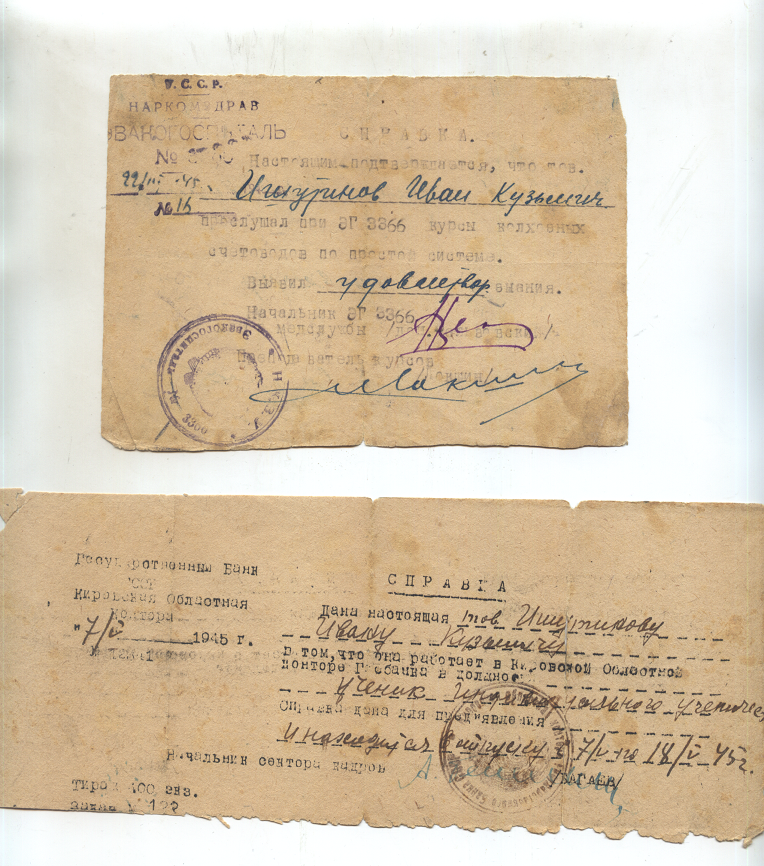 У.С.С.Р.
НАРКОМЗДРАВ
ЭВАКОГОСПИТАЛЬ
№
СПРАВКА.
Настоящим подтверждается, что тов.
22/III 45
Ишутинов Иван Кузьмич
№ 16
прослушал при ЭГ 3366 курсы колхозных
счетоводов по простой система.
Выявил удовлетвор знания.
Начальник ЭГ 3366
медслужбы
Преподаватель курсов
Эвакогоспиталь
Н.К.З.
Государственный Банк
СССР
Кировская Областная
Контора
"7/V 1945 г.
СПРАВКА
Дана настоящая тов Ишутинову
Ивану Кузьмичу
в том, что она работает в Кировской Областной
конторе Госбанка в должнос
ученик индивидуального ученичес
Справка дана для предъявления
и находится в отпуску с 7/V по 18/V 45г.
Начальник сектора кадров
/ВАГАЕВ/
Тираж 400 экз.